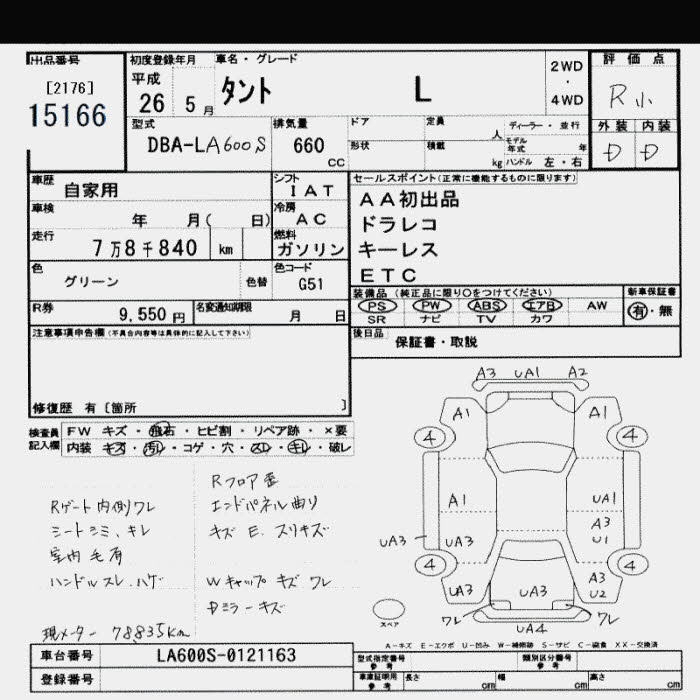 出品番号
[2176]
15166
初度登録年月
平成
26 5 月
車名・グレード
タント L
2WD
・
4WD
評価点
R 小
外装 内装
D D
型式
DBA-LA600S
排気量
660
CC
ドア 定員
人
ディーラー・並行
モデル年式 年
形状 積載
kg ハンドル 左・右
車歴
自家用
シフト
IAT
車検
年 月( 日)
冷房
AC
走行
7万8千840 km
燃料
ガソリン
色
グリーン
色替
色コード
G51
R券
9,550 円
名変通知期限
月 日
セールスポイント(正常に機能するものに限ります)
AA初出品
ドラレコ
キーレス
ETC
装備品 (純正品に限り○をつけてください)
PS PW ABS エアB AW
SR ナビ TV カワ
新車保証書
有・無
後日品
保証書・取説
注意事項申告欄(不具合内容等は具体的に記入して下さい)
修復歴 有〔箇所 〕
検査員記入欄
FW キズ・飛石・ヒビ割・リペア跡・×要
内装 キズ・汚レ・コゲ・穴・スレ・キレ・破レ
Rゲート内側ワレ
シートシミ、キレ
室内毛有
ハンドルスレ、ハゲ
現メーター 78835km
Rフロア歪
エンドパネル曲り
キズ E、スリキズ
Wキャップ キズ ワレ
Dミラーキズ
A3 UA1 A2
A1 A1
4 4
A1 UA1
A3
U1
UA3 UA3
4 4
UA3 UA3 A3
U2
ワレ ワレ
UA4
スペア
A-キズ E-エクボ U-凹み W-補修跡 S-サビ C-腐食 XX-交換済
車台番号
LA600S-0121163
登録番号
型式指定番号
参考
類別区分番号
参考
車庫証明用
参考
長さ cm 幅 cm 高さ cm